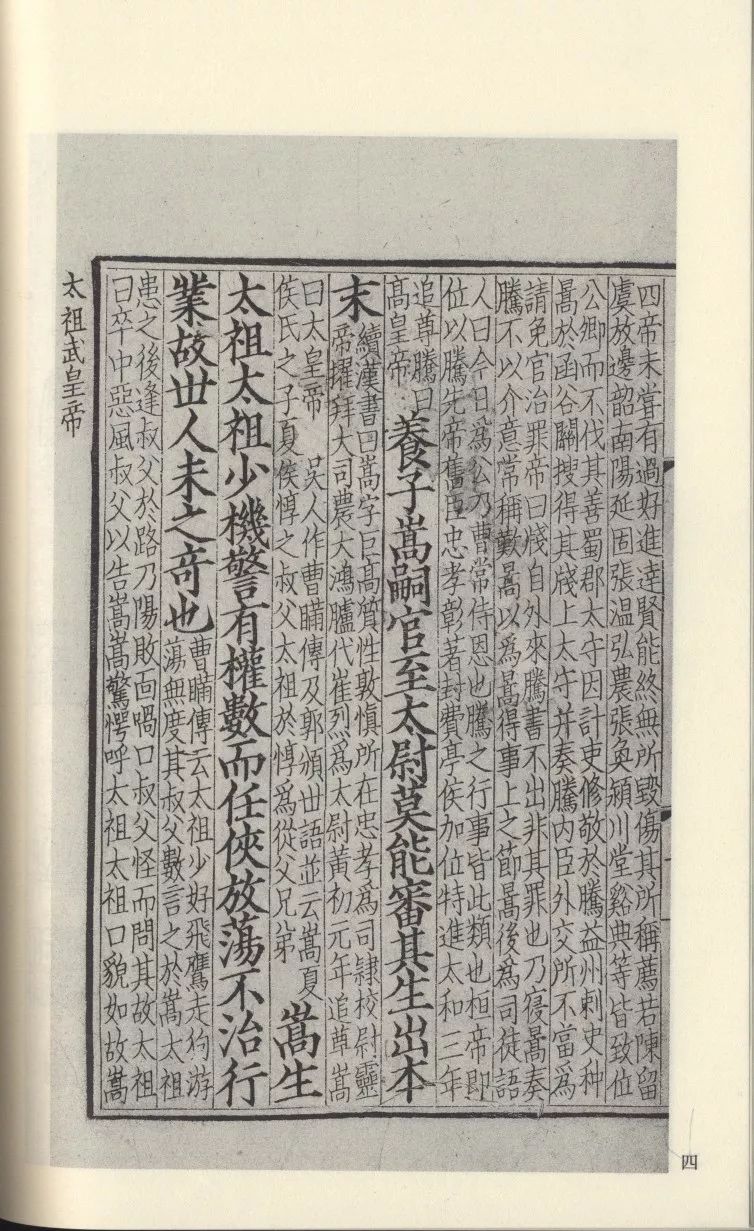 四帝未嘗有過好進達賢能終無所毀傷其所稱薦若陳留
虞放邊韶南陽延固張温弘農張奐潁川堂谿典等皆致位
公卿而不伐其善蜀郡太守因計吏修敬於騰益州刺史种
暠於函谷關搜得其牋上太守并奏騰内臣外交所不當爲
請免官治罪帝曰牋自外來騰書不出非其罪也乃寑暠奏
騰不以介意常稱歎暠以爲暠得事上之節暠後爲司徒語
人曰今日爲公乃曹常侍恩也騰之行事皆此類也桓帝即
位以騰先帝舊臣忠孝彰著封費亭侯加位特進太和三年
追尊騰曰
高皇帝
養子嵩嗣官至太尉莫能審其生出本
末
續漢書曰嵩字巨高質性敦慎所在忠孝爲司隷校尉靈
帝擢拜大司農大鴻臚代崔烈爲太尉黄初元年追尊嵩
曰太皇帝 吴人作曹瞞傳及郭頒丗語並云嵩夏
侯氏之子夏侯惇之叔父太祖於惇爲從父兄弟
嵩生
太祖太祖少機警有權數而任俠放蕩不治行
業故丗人未之竒也
曹瞞傳云太祖少好飛鷹走狗游
蕩無度其叔父數言之於嵩太祖
患之後逢叔父於路乃陽敗面喎口叔父怪而問其故太祖
曰卒中惡風叔父以告嵩嵩驚愕呼太祖太祖口貌如故嵩
太祖武皇帝
四